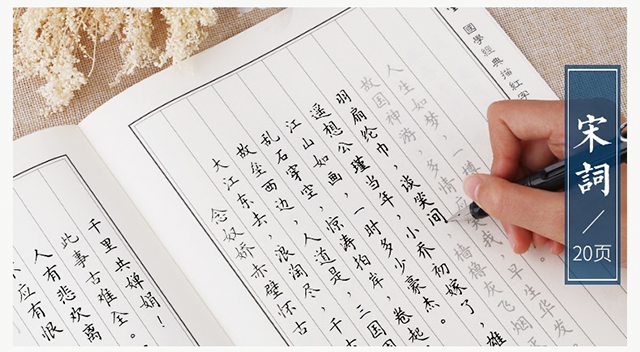 國學經典描紅字
宋詞
20页
念奴娇 赤壁怀古
大江东去，浪淘尽，千
故垒西边，人道是，三国
乱石穿空，惊涛拍岸，卷起
江山如画，一时多少豪杰。
遥想公瑾当年，小乔初嫁了，雄
羽扇纶巾，谈笑间，樯橹灰飞烟
故国神游，多情应笑我，早生华发
人生如梦，一樽
应有恨
人有悲欢离
此事古难全。
千里共婵娟！